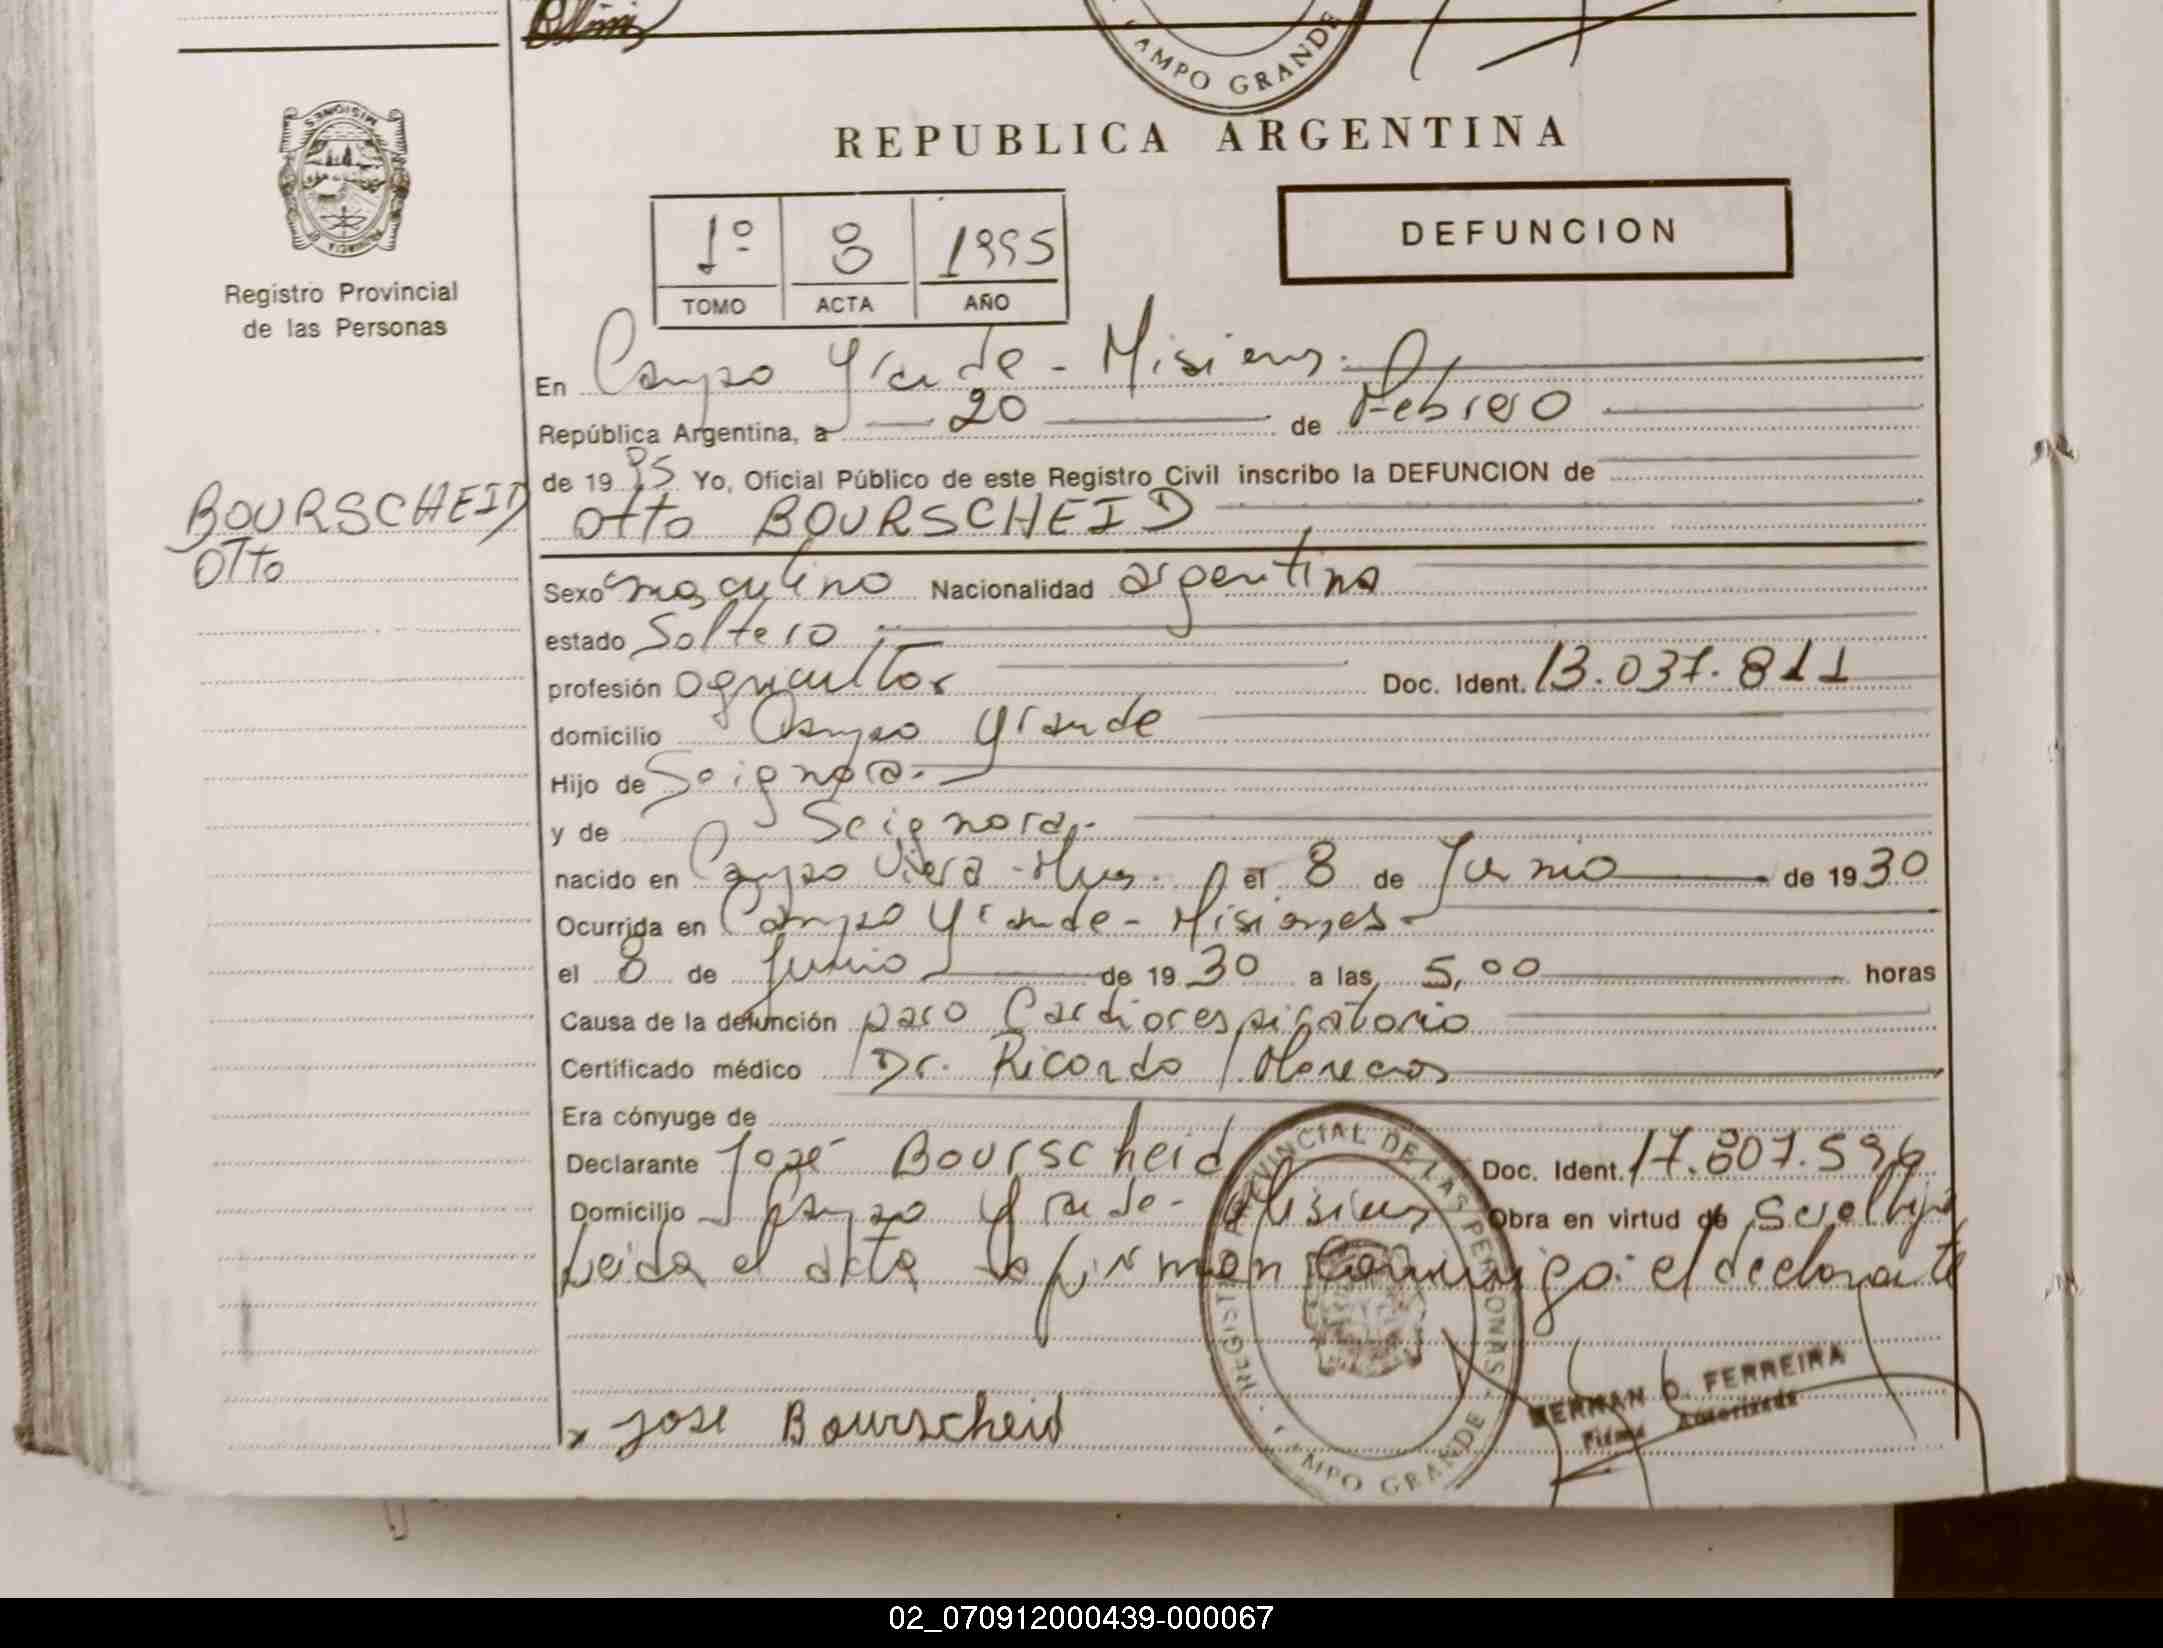 AMPO GRANDE
REPUBLICA ARGENTINA
MISIONES
PROVINCIA DE
Registro Provincial
de las Personas
1º 8 1995
TOMO ACTA AÑO
DEFUNCION
En Campo Grande - Misiones.
República Argentina, a 20 de Febrero
de 19 95 Yo, Oficial Público de este Registro Civil inscribo la DEFUNCION de
BOURSCHEID
Otto
Otto BOURSCHEID
Sexo masculino Nacionalidad argentina
estado Soltero
profesión agricultor Doc. Ident. 13.037.811
domicilio Campo Grande
Hijo de Se ignora.
y de Se ignora.
nacido en Campo Viera - Mnes. el 8 de Junio de 19 30
Ocurrida en Campo Grande - Misiones
el 8 de Junio de 19 30 a las 5,00 horas
Causa de la defunción paro Cardiorespiratorio
Certificado médico Dr. Ricardo
Era cónyuge de
Declarante José Bourscheid Doc. Ident. 17.807.596
Domicilio Campo Grande - Misiones Obra en virtud de
Leida el acta la firman Conmigo: el declarante
REGISTRO PROVINCIAL DE LAS PERSONAS
CAMPO GRANDE
x Jose Bourscheid
HERNAN D. FERREIRA
Firma Autorizada
02_070912000439-000067